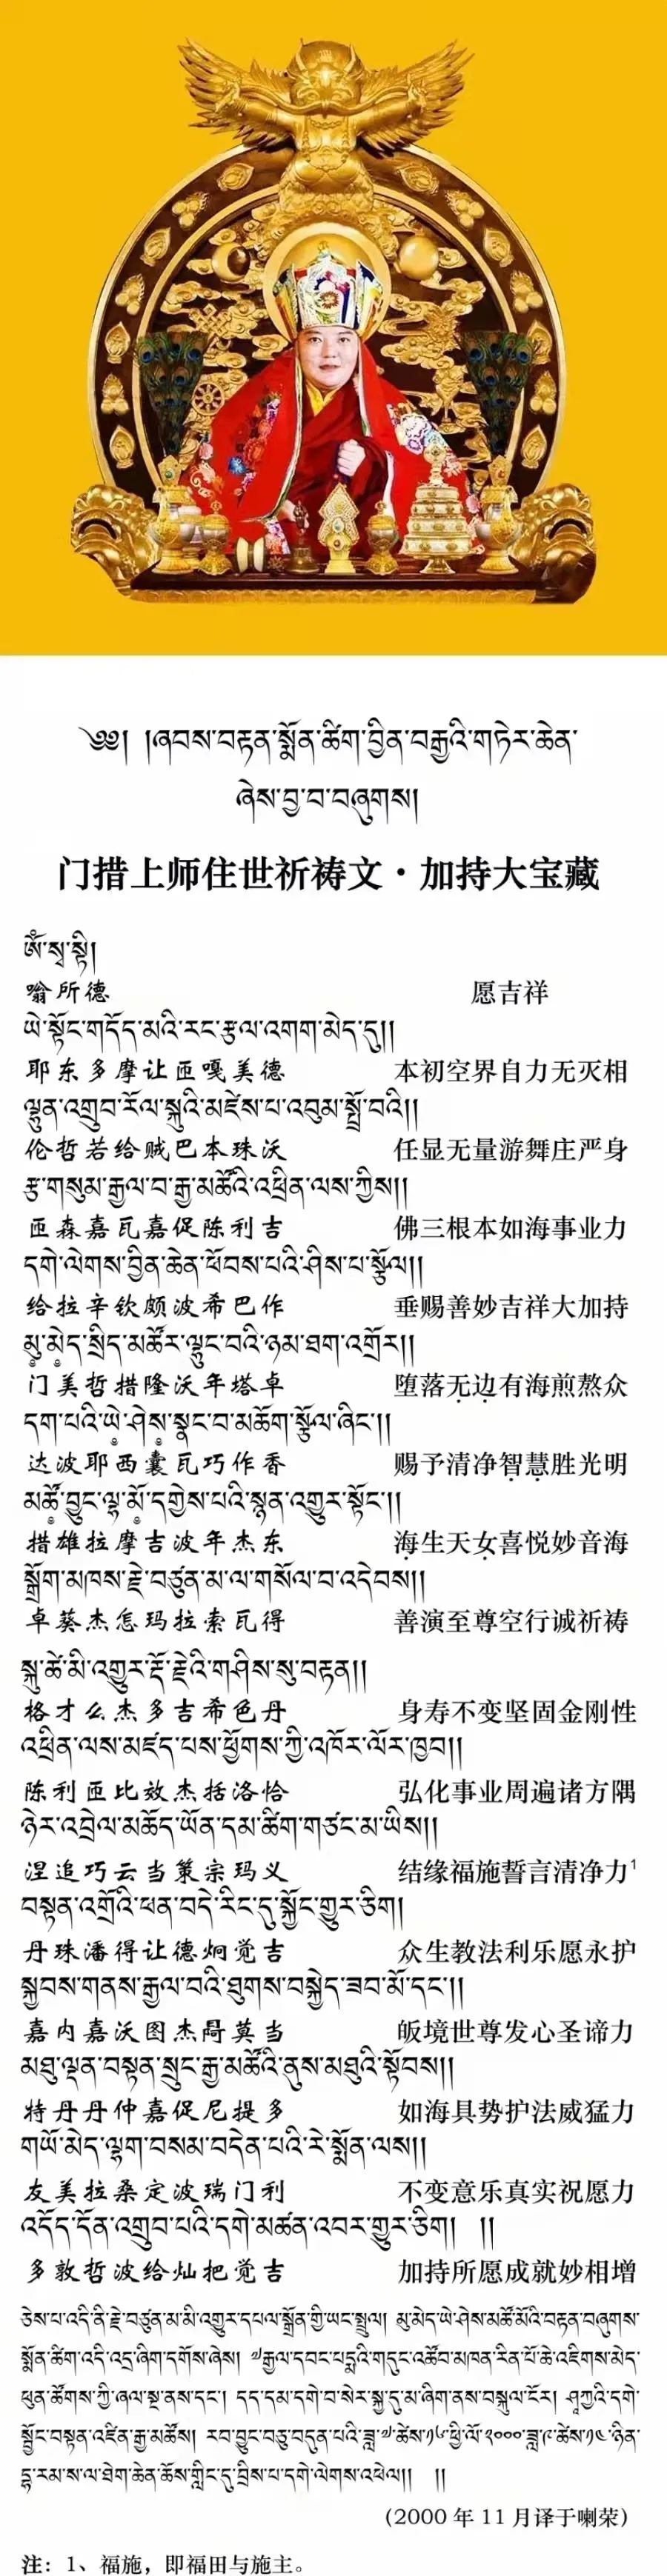 ༄༅། །ཞབས་བརྟན་སྨོན་ཚིག་བྱིན་བརླབས་གཏེར་ཆེན་
ཞེས་བྱ་བ་བཞུགས།
门措上师住世祈祷文·加持大宝藏
ༀ་སྭ་སྟི།
嗡所德 愿吉祥
ཡེ་སྟོང་གདོད་མའི་རང་རྩལ་འགག་མེད་དུ།།
耶东多摩让匝嘎美德 本初空界自力无灭相
ལྷུན་འགྲུབ་རོལ་སྐུའི་མཛེས་པ་འབུམ་སྤྲོ་བའི།།
伦哲若给贼巴本珠沃 任显无量游舞庄严身
རྩ་གསུམ་རྒྱལ་བ་རྒྱ་མཚོའི་འཕྲིན་ལས་ཀྱིས།།
匝森嘉瓦嘉促陈利吉 佛三根本如海事业力
དགེ་ལེགས་བྱིན་ཆེན་ཕོབས་པའི་ཤིས་པ་སྩོལ།།
给拉辛钦颇波希巴作 垂赐善妙吉祥大加持
མུ་མེད་སྲིད་མཚོར་ལྷུང་བའི་ཉམ་ཐག་འགྲོར།།
门美哲措隆沃年塔卓 堕落无边有海煎熬众
དག་པའི་ཡེ་ཤེས་སྣང་བ་མཆོག་སྩོལ་ཞིང་།།
达波耶西囊瓦巧作香 赐予清净智慧胜光明
མཚོ་བྱུང་ལྷ་མོ་དགྱེས་པའི་སྙན་འགྱུར་སྟོང་།།
措雄拉摩吉波年杰东 海生天女喜悦妙音海
སྒྲོག་མཁས་རྗེ་བཙུན་མ་ལ་གསོལ་བ་འདེབས།།
卓葵杰怎玛拉索瓦得 善演至尊空行诚祈祷
སྐུ་ཚེ་མི་འགྱུར་རྡོ་རྗེའི་གཤིས་སུ་བརྟན།།
格才么杰多吉希色丹 身寿不变坚固金刚性
འཕྲིན་ལས་མཛད་པས་ཕྱོགས་ཀྱི་འཁོར་ལོར་ཁྱབ།།
陈利匝比效杰括洛恰 弘化事业周遍诸方隅
ཉེར་འབྲེལ་མཆོད་ཡོན་དམ་ཚིག་གཙང་མ་ཡིས།།
涅追巧云当策宗玛义 结缘福施誓言清净力¹
བསྟན་འགྲོའི་ཕན་བདེ་རིང་དུ་སྐྱོང་གྱུར་ཅིག།
丹珠潘得让德炯觉吉 众生教法利乐愿永护
སྐྱབས་གནས་རྒྱལ་བའི་ཐུགས་བསྐྱེད་ཟབ་མོ་དང་།།
嘉内嘉沃图杰莫当 皈境世尊发心圣谛力
མཐུ་ལྡན་བསྟན་སྲུང་རྒྱ་མཚོའི་ནུས་མཐུའི་སྟོབས།།
特丹丹仲嘉促尼提多 如海具势护法威猛力
གཡོ་མེད་ལྷག་བསམ་བདེན་པའི་རེ་སྨོན་ལས།།
友美拉桑定波瑞门利 不变意乐真实祝愿力
འདོད་དོན་འགྲུབ་པའི་དགེ་མཚན་འབར་གྱུར་ཅིག། །།
多敦哲波给灿把觉吉 加持所愿成就妙相增
ཅེས་པ་འདི་ནི་རྗེ་བཙུན་མ་མི་འགྱུར་དཔལ་སྒྲོན་གྱི་ཡང་སྤྲུལ། མུ་མེད་ཡེ་ཤེས་མཚོ་མོའི་བརྟན་བཞུགས་
སྨོན་ཚིག་འདི་འདྲ་ཞིག་དགོས་ཞེས། ༧རྒྱལ་དབང་པདྨའི་གདུང་འཚོབ་མཁན་རིན་པོ་ཆེ་འཇིགས་མེད་
ཕུན་ཚོགས་ཀྱི་ཞལ་སྔ་ནས་དང་། དད་དམ་དགེ་བ་སེར་སྐྱ་དུ་མ་ཞིག་ནས་བསྐུལ་ངོར། ཤཱཀྱའི་དགེ་
སྦྱོང་བསྟན་འཛིན་རྒྱ་མཚོས། རབ་བྱུང་བཅུ་བདུན་པའི་ཟླ་༧ཚེས་༡༦ཕྱི་ལོ་༢༠༠༠ཟླ་༩ཚེས་༡༤ཉིན་
དྷ་རམ་ས་ལ་ཐེག་ཆེན་ཆོས་གླིང་དུ་བྲིས་པ་དགེ་ལེགས་འཕེལ།། །།
(2000 年 11 月译于喇荣)
注：1、福施，即福田与施主。